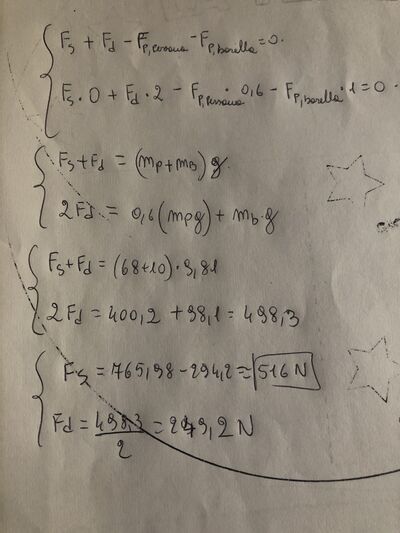 Fs + Fd - Fp,persona - Fp,barella = 0.
Fs · 0 + Fd · 2 - Fp,persona · 0,6 - Fp,barella · 1 = 0.
Fs + Fd = (mp + mB) g.
2Fd = 0,6 (mpg) + mb·g
Fs + Fd = (68+10)·9,81
2Fd = 400,2 + 98,1 = 498,3
Fs = 765,98 - 294,2 = 516 N
Fd = 498,3/2 = 249,2 N